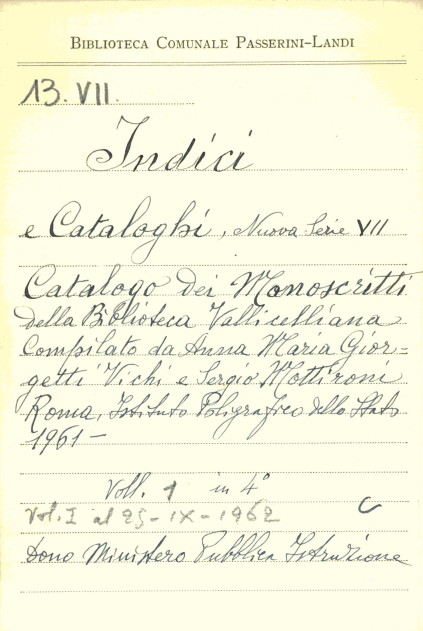 BIBLIOTECA COMUNALE PASSERINI-LANDI
13. VII.
Indici
e Cataloghi, Nuova Serie VII
Catalogo dei Manoscritti
della Biblioteca Vallicelliana
Compilato da Anna Maria Gior=
getti Vichi e Sergio Mottironi
Roma, Istituto Poligrafico dello Stato
1961 —
Voll. 1 in 4°
Vol. I al 25-IX-1962
Dono Ministero Pubblica Istruzione